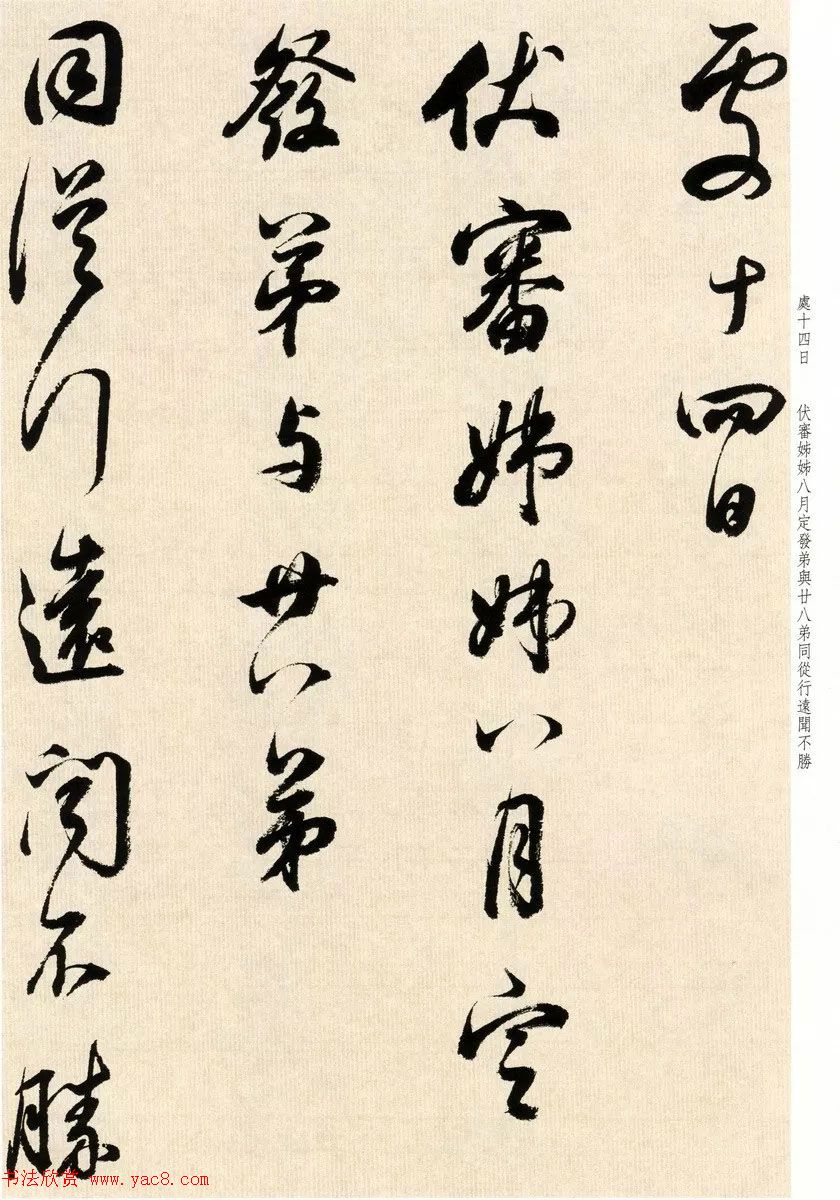 處十四日
伏審姊姊八月定
發弟与廿八弟
同從行遠聞不勝
處十四日 伏審姊姊八月定發弟與廿八弟同從行遠聞不勝
书法欣赏 www.yac8.com